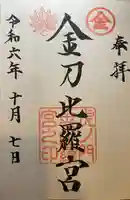 奉拝
金刀比羅宮
令和六年十月七日